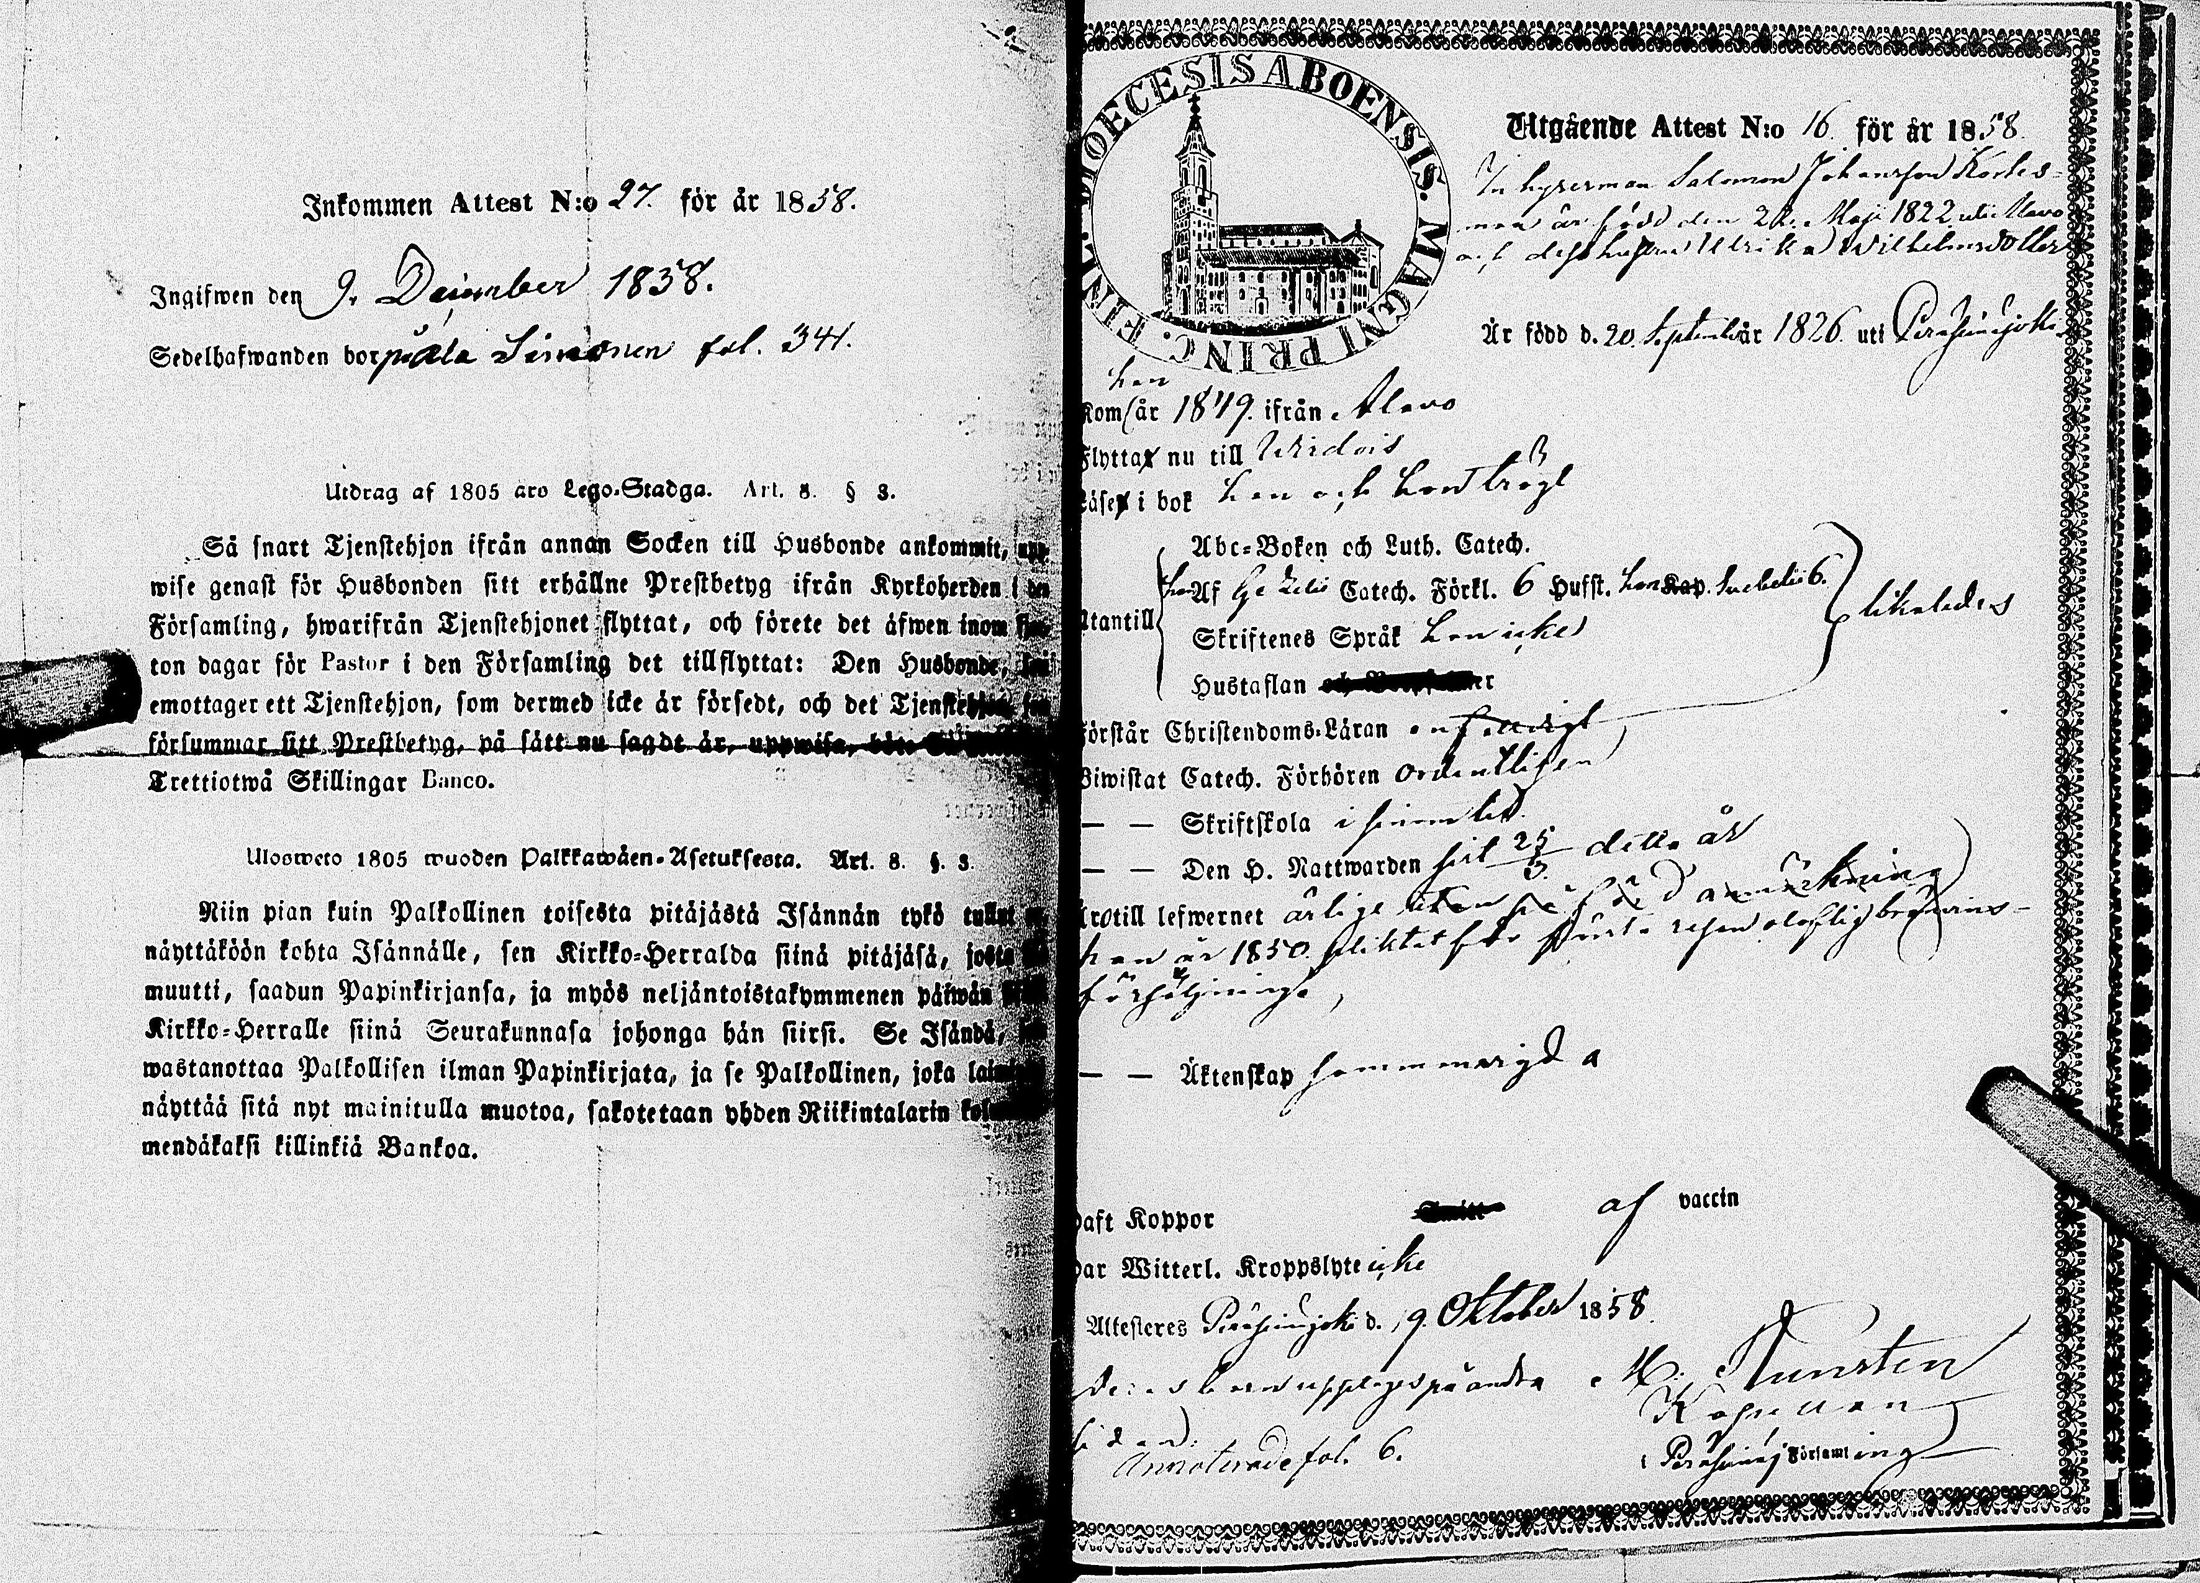 Inkommen Attest N:o 27. för år 1858.
Ingifwen den 9. December 1858.
Sedelhafwanden bor på Ala Simonen fol. 341.
Utdrag af 1805 års Lego-Stadga. Art. 8. § 3.
Så snart Tjenstehjon ifrån annan Socken till Husbonde ankommit, upp-
wise genast för Husbonden sitt erhållne Prestbetyg ifrån Kyrkoherden i den
Församling, hwarifrån Tjenstehjonet flyttat, och förete det äfwen inom fjor-
ton dagar för Pastor i den Församling det tillflyttat: Den Husbonde, som
emottager ett Tjenstehjon, som dermed icke är försedt, och det Tjenstehjon, som
försummar sitt Prestbetyg, på sätt nu sagdt är, uppwisa, böte
Trettiotwå Skillingar Banco.
Ulosweto 1805 wuoden Palkkawäen-Asetuksesta. Art. 8. §. 3.
Niin pian kuin Palkollinen toisesta pitäjästä Isännän tykö tullut on,
näyttäköön kohta Isännälle, sen Kirkko-Herralda siinä pitäjäsä, josta
muutti, saadun Papinkirjansa, ja myös neljäntoistakymmenen päiwän
Kirkko-Herralle siinä Seurakunnasa johonga hän siirsi. Se Isändä,
wastanottaa Palkollisen ilman Papinkirjata, ja se Palkollinen, joka
näyttää sitä nyt mainitulla muotoa, sakotetaan yhden Riikintalarin
mendäkaksi killinkiä Bankoa.
DIOECESIS ABOENSIS. MAGNI PRINC. FINL.
Utgående Attest N:o 16. för år 1858.
Inhysesman Salomon Johansson Kortes-
man är född den 22. Maji 1822 uti Alavo
och dess hustru Ulrika Wilhelmsdotter
Är född d. 20. September år 1826. uti Peräseinäjoki
han
Kom år 1849. ifrån Alavo
Flytta nu till Wirdois
Läser i bok han och hon trögt
Abc-Boken och Luth. Catech.
han Af Gezelii Catech. Förkl. 6 Hufst. hon Kap. Svebelii 6.
Utantill likaledes
Skriftenes Språk hon icke
Hustaflan
Förstår Christendoms-Läran enfaldigt
Biwistat Catech. Förhören ordentligen
— — Skriftskola i sinom tid.
— — Den H. Nattwarden sist 25/3. detta år
Äro till lefwernet ärlige utan på
han år 1850. pliktat för första resan olaflig brännvins-
försäljning,
— — Äktenskap sammanvigda
Haft Koppor af vaccin
Har Witterl. Kroppslyte icke
Attesteres Peräseinäjoki d. 9. Oktober 1858.
Deras barn upptages på andra M. Kunsten
sidan. Kapellan
Annoterade fol. 6. Peräseinäj. Församling